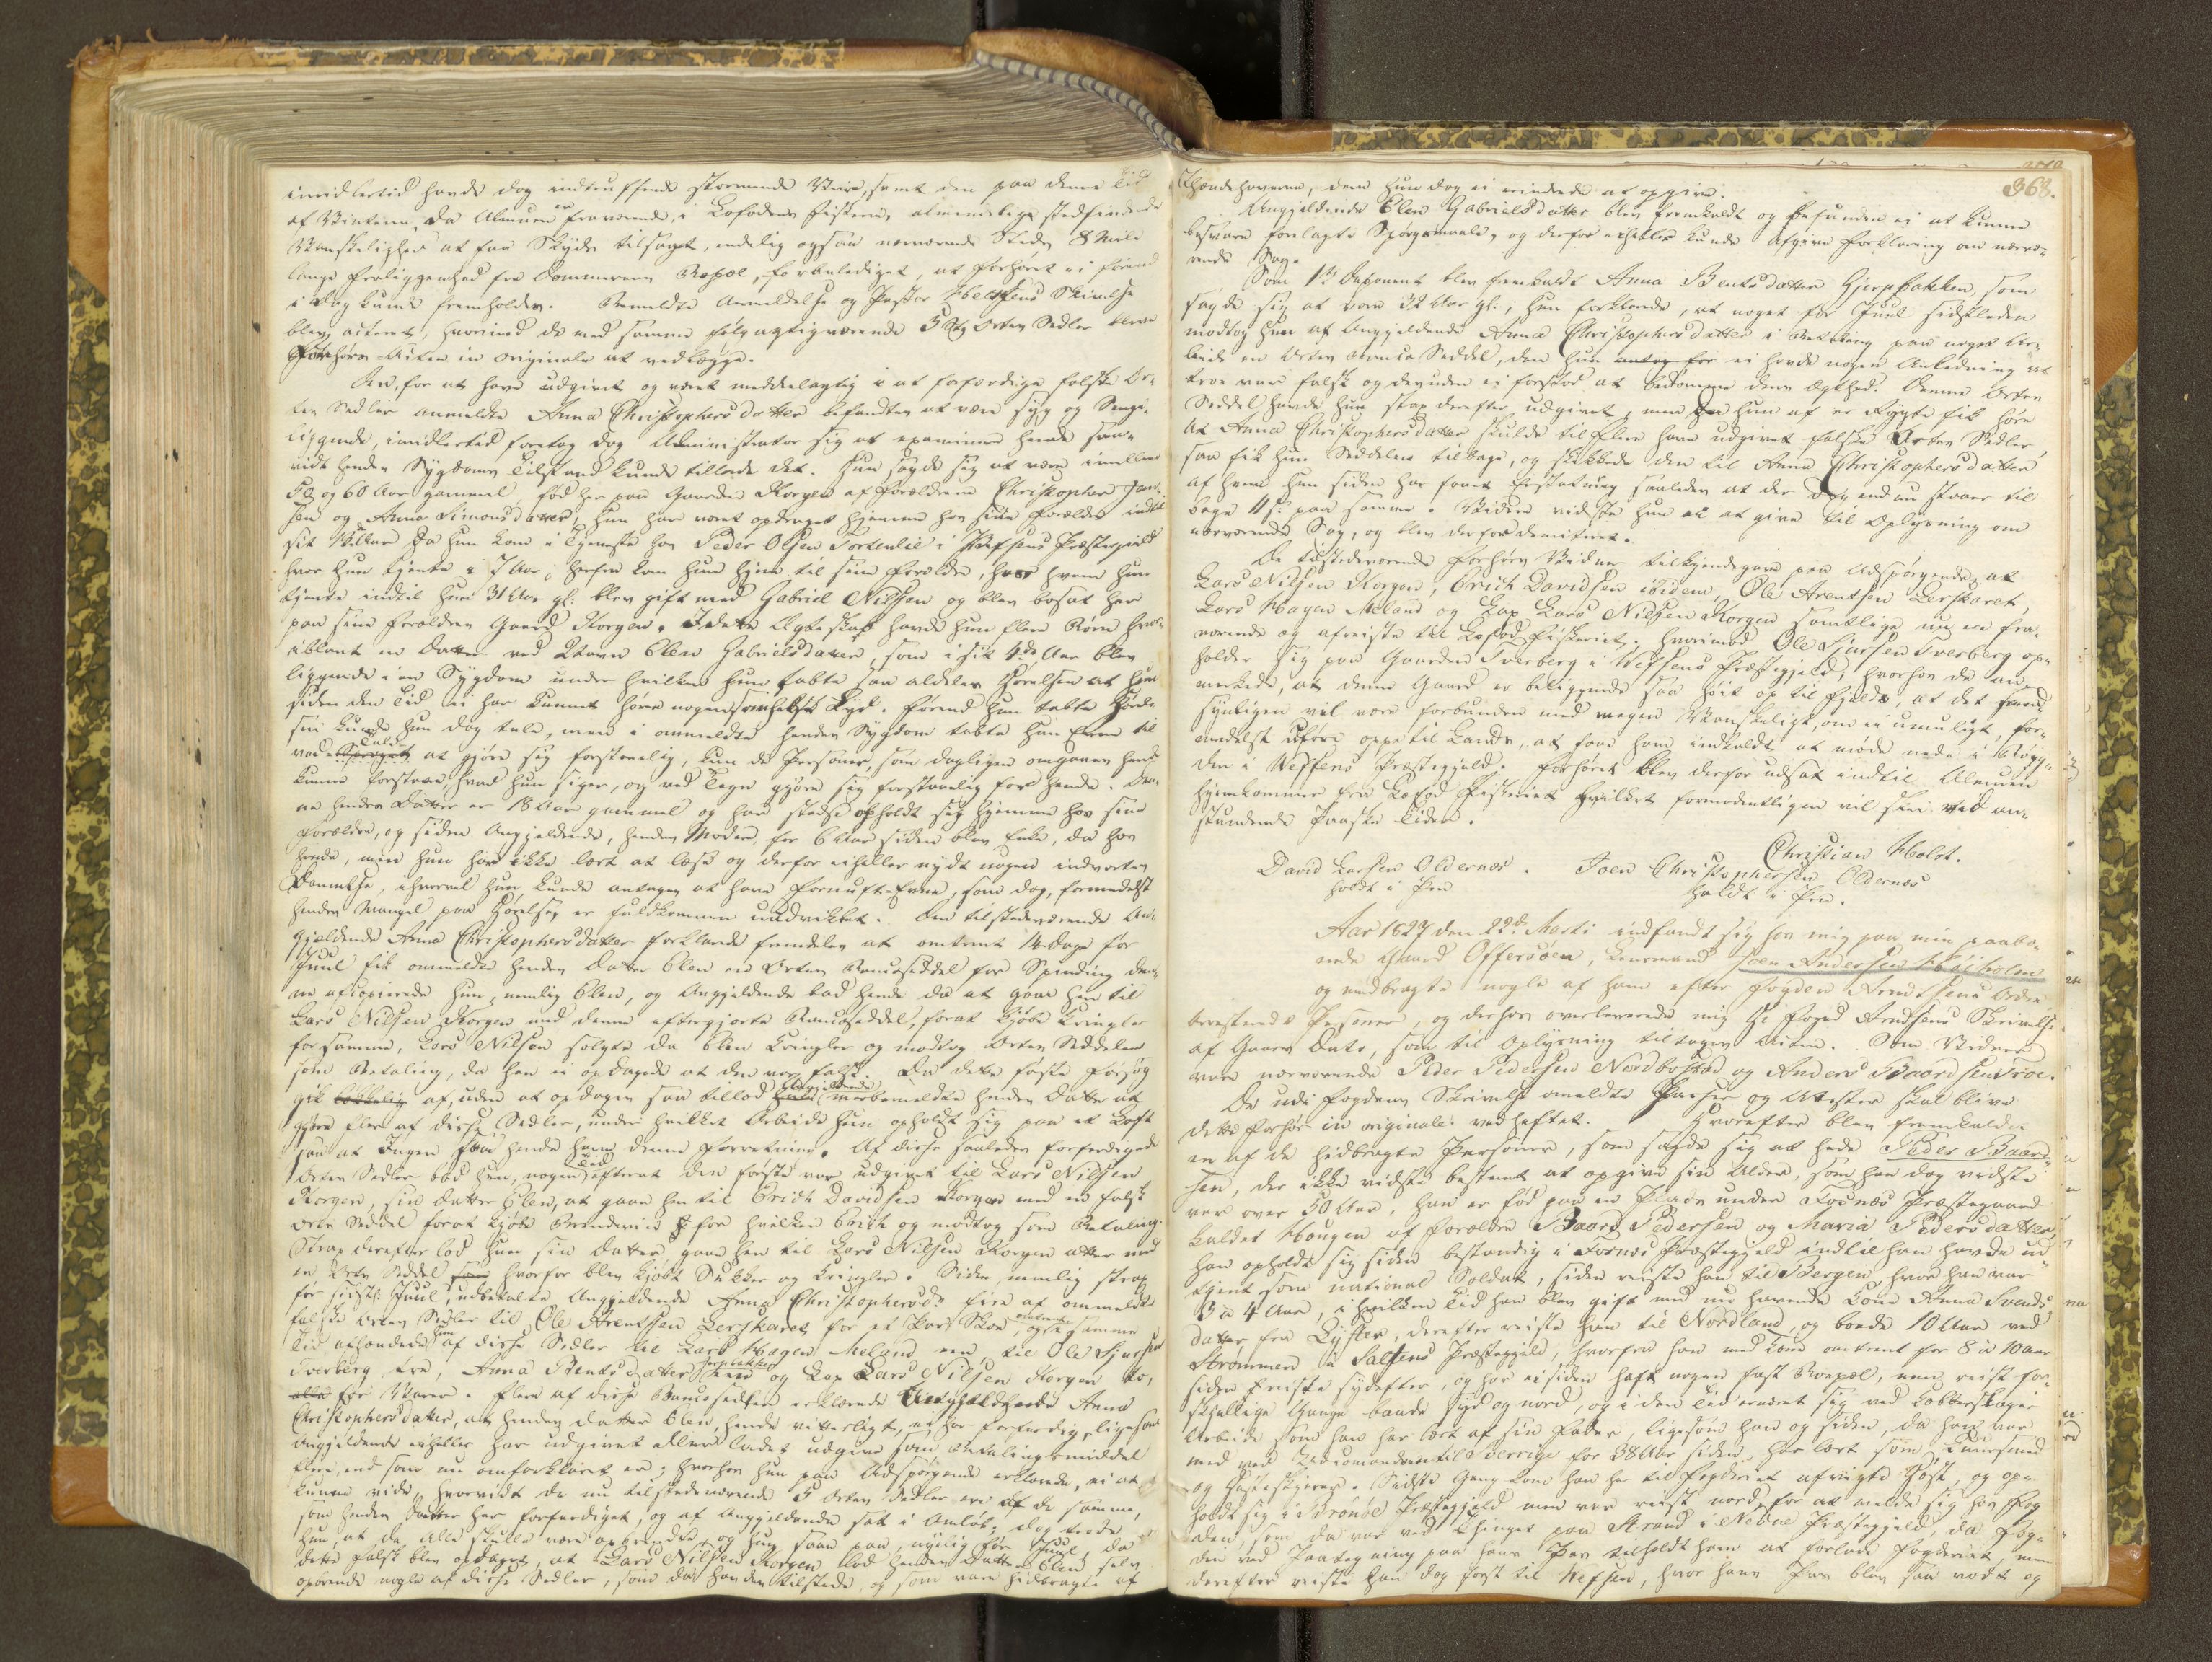 imidlertid havde dog indtruffende stormende Veire, samt den paa denne Tid
af Vinteren, da Almuen er fraværende, i Lofodens Fiskerie, almindelige stedfindende
Vanskelighed at faa Skyds tilsagt, endelig ogsaa nærværende Steds 8 Mile
lange fraliggenhed fra Dommerens Bopæl, foranlediget, at Forhøret ei førend
i Dag kunde fremholdes. Bemeldte Anmeldelse og Pastor Skrivelse
blev acteret, hvorimod de med samme følgagtig værende 5 Stk Orten Sedler bleve
Forhørs Acten in originale at vedlægge.
Den, for at have udgivet og været meddeelagtig i at forfærdige falske Or-
ten Sedler anmeldte Anna Christophersdatter befandtes at være syg og Senge-
liggende, imidlertid foretog dog Administrator sig at examinere hende saa-
vidt hendes Sygdoms Tilstand kunde tillade det. Hun sagde sig at være imellem
50 og 60 Aar gammel, fød her paa Gaarden Korgen af Forældrene Christopher Jen-
sen og Anna Simonsdatter, hun har været opdraget hjemme hos sine Forældre indtil
sit Aar da hun kom i Tjeneste hos Peder Olsen Tortenlie i Vefsens Præstegield
hvor hun tjente i 7 Aar, herfra kom hun hjem til sine Forældre, hos hvem hun
tjente indtil hun 31 Aar gl: blev gift med Gabriel Nilssen og blev bosat her
paa sine Forældres Gaard Korgen. I dette Ægteskab havde hun flere Børn hvor-
iblant en Datter ved Navn Elen Gabrielsdatter, som i sit 4de Aar blev
liggende i en Sygdom under hvilken hun tabte saa aldeles Hørelsen at hun
siden den Tid ei har kunnet høre nogensomhelst Lyd. Førend hun tabte Hørel-
sen kunde hun dog tale, men i ommeldte hendes Sygdom tabte hun Evne til
ved Tale at gjøre sig forstaaelig, kun de Personer, som dagligen omgaaes hende
kunne forstaae, hvad hun siger, og ved Tegn gjøre sig forstaaelig for hende. Den-
ne hendes Datter er 18 Aar gammel og har stedse opholdt sig hjemme hos sine
Forældre, og siden Angjeldende, hendes Moder, for 6 Aar siden blev Enke, da hos
hende, men hun har ikke lært at læse og derfor eiheller nydt nogen indvortes
Dannelse, ihvorvel hun kunde antages at have Fornuft-Evne, som dog, formedelst
hendes Mangel paa Hørelse er fuldkommen uudviklet. Den tilstedeværende An-
gjældende Anna Christophersdatter forklarede fremdeles at omtrent 14 Dage før
Juul fik ommeldte hendes Datter Elen en Orten Bancoseddel for Spinding den-
ne afcopierede hun, nemlig Elen, og Angjeldende bad hende da at gaae hen til
Lars Nilsen Korgen med denne eftergjorte Bancoseddel, forat kjøbe Kringler
for samme, Lars Nilsen solgte da Elen Kringler og modtog Orten Seddelen
som Betaling, da han ei opdagede at den var falsk. Da dette første Forsøg
gik af, uden at opdages saa tillod Angjeldende merbemeldte hendes Datter at
gjøre flere af disse Sedler, under hvilket Arbeide hun opholdt sig paa et Loft
saa at Ingen saae hende denne Forretning. Af disse saaledes forfærdigede
Orten Sedler bad hun, nogen Tid efterat den første var udgivet til Lars Nilssen
Korgen, sin Datter Elen, at gaae hen til Erich Davidsen Korgen med en falsk
Orte Seddel forat kjøbe Brændeviin for hvilken Erich og modtog som Betaling.
Strax derefter lod hun sin Datter gaae hen til Lars Nilssen Korgen atter med
en Orte Seddel hvorfor blev kjøbt Sukker og Kringler. Siden, nemlig strax
før sidstl: Juul, udbetalte Angjeldende Anna Christophersdr fire af ommeldte
falske Orten Sedler til Ole Arentsen Lerskaret for et Par Skoe, og samme
Tid afhændede hun af disse Sedler til Lars Hagen Meland een, til Ole Sjursen
Tverberg een, Anna Bentsdatter Gjerpbakken og Lap Lars Nilsen Korgen to,
for Varer. Flere af disse Bancosedler erklærede Angjældende Anna
Christophersdatter, at hendes Datter Elen, hende vitterligt, ei har forfærdig, ligesom
Angjeldende eiheller har udgivet eller ladet udgive som Betalingsmiddel
flere, end som nu omforklaret ere; hvorhos hun paa Adspørgende erklærede, ei at
kunne vide, hvorvidt de nu tilstedeværende 5 Orten Sedler ere af de samme,
som hendes Datter har forfærdiget, og af Angjeldende sat i Omløb, dog troede
hun, at de alle skulle være opbrændte, og hun saae paa, nylig før Juul, da
dette falsk blev opdaget, at Lars Nilssen Korgen lod hendes Datter Elen selv
opbrende nogle af disse Sedler, som da havdes tilstede, og som vare hidbragte af
368.
Ihændehaverne, dem hun dog ei erindrede at opgive.
Angjeldende Elen Gabrielsdatter blev fremkaldt og befunden ei at kunne
besvare forelagte Spørgsmaale, og derfor eiheller kunde afgive Forklaring om nærvæ-
rende Sag.
Som 1ste Deponent blev fremkaldt Anna Bentsdatter Gjerpbakken, som
sagde sig at være 32 Aar gl:; hun forklarede, at noget før Juul sidstleden
modtog hun af Angjeldende Anna Christophersdatter i Betaling paa noget Ar-
beide en Orten Banco Seddel, den hun ei havde nogen Anledning at
troe var falsk og desuden ei forstod at bedømme dens Ægthed. Denne Orten
Seddel havde hun strax derefter udgivet, men da hun af et Rygte fik høre
at Anna Christophersdatter skulde tilflere have udgivet falske Orten Sedler,
saa fik hun Seddelen tilbage, og skikkede den til Anna Christophersdatter
af hvem hun siden har faaet Erstatning saaledes at der dog endnu staaer til
bage 11 s: paa samme. Videre vidste hun ei at give til Oplysning om
nærværende Sag, og blev derfor demitteret.
De tilstedeværende Forhørs Vidner tilkjendegave paa Adspørgende, at
Lars Nilsen Korgen, Erich Davidsen ibidem, Ole Arentsen Lerskaret,
Lars Hagen Meland og Lap Lars Nielsen Korgen samtlige nu ere fra-
værende og afreiste til Lofod Fiskeriet; hvorimod Ole Siursen Tverberg op-
holder sig paa Gaarden Tverberg i Vefsens Præstegjeld, hvorhos de an-
mærkede, at denne Gaard er beliggende saa høit op til Fjelds, at det
synligen vil være forbunden med megen Vanskelighed, om ei umuligt, for-
medelst Uføre oppe til Lands, at faae ham indkaldt at møde nede i Bøyg-
den i Weffsens Præstegjeld. Forhøret blev derfor udsat indtil Almuen
hjemkommer fra Lofod Fiskeriet hvilket formodentligen vil skee ved an-
stundende Paaske Tider.
Christian Holst.
David Larsen Oldernæs. Joen Christophersen Oldernæs
holdt i Pen holdt i Pen.
Aar 1827 den 22de Marti indfandt sig hos mig paa min paabo-
ende Gaard Offersøen, Lensmand Joen Andersen Høiholm
og medbragte nogle af ham efter Fogden Arntsens Ordre
arresterede Personer, og derhos overleverede mig Hr Foged Arntsens Skrivelse
af Gaars Dato, som til Oplysning tiltages Acten. Som Vidner
vare nærværende Peder Pedersen Nordbostad og Anders Baardsen Troe.
De udi Fogdens Skrivelse omeldte Passer og Attester skal blive
dette Forhør in originale vedheftet. Hvorefter blev fremkaldet
en af de hidbragte Personer, som sagde sig at hede Peder Baard-
sen, der ikke vidste bestemt at opgive sin Alder, som han dog vidste
var over 50 Aar, han er fød paa en Plads under Fosnæs Præstegaard
kaldet Hougen af Forældre Baard Pedersen og Maria Pedersdatter,
han opholdt sig siden bestandig i Fosnæs Præstegjeld indtil han havde ud-
tjent som national Soldat, siden reiste han til Bergen, hvor han var
3 a 4 Aar, i hvilken Tid han blev gift med nu havende Kone Anna Svends-
datter fra Lyster, derefter reiste han til Nordland, og boede 10 Aar ved
Strømmen i Saltens Præstegjeld, hvorfra han med Kone omtrent for 8 a 10 Aar
siden reiste sydefter, og har ei siden haft nogen fast Bopæl, men reist for-
skjellige Gange baade Syd og nord, og i den Tid ernæret sig ved Kobberslager
Arbeide som han har lært af sin Fader, ligesom han og siden, da han var
med ved til Sverrige for 38 Aar siden, har lært som
og Hesteskjærer. Sidste Gang kom han her til Fogderiet afvigte Høst, og op-
holdt sig i Brønøe Præstegjeld men var reist nord, for at melde sig hos Fog-
den, som da var ved Thinget paa Strand i Nesne Præstegjeld, da Fog-
den ved Paategning paa hans Pas tilholdt ham at forlade Fogderiet, men
derefter reiste han dog først til Vefsen, hvor hans Pas blev saa vaadt og